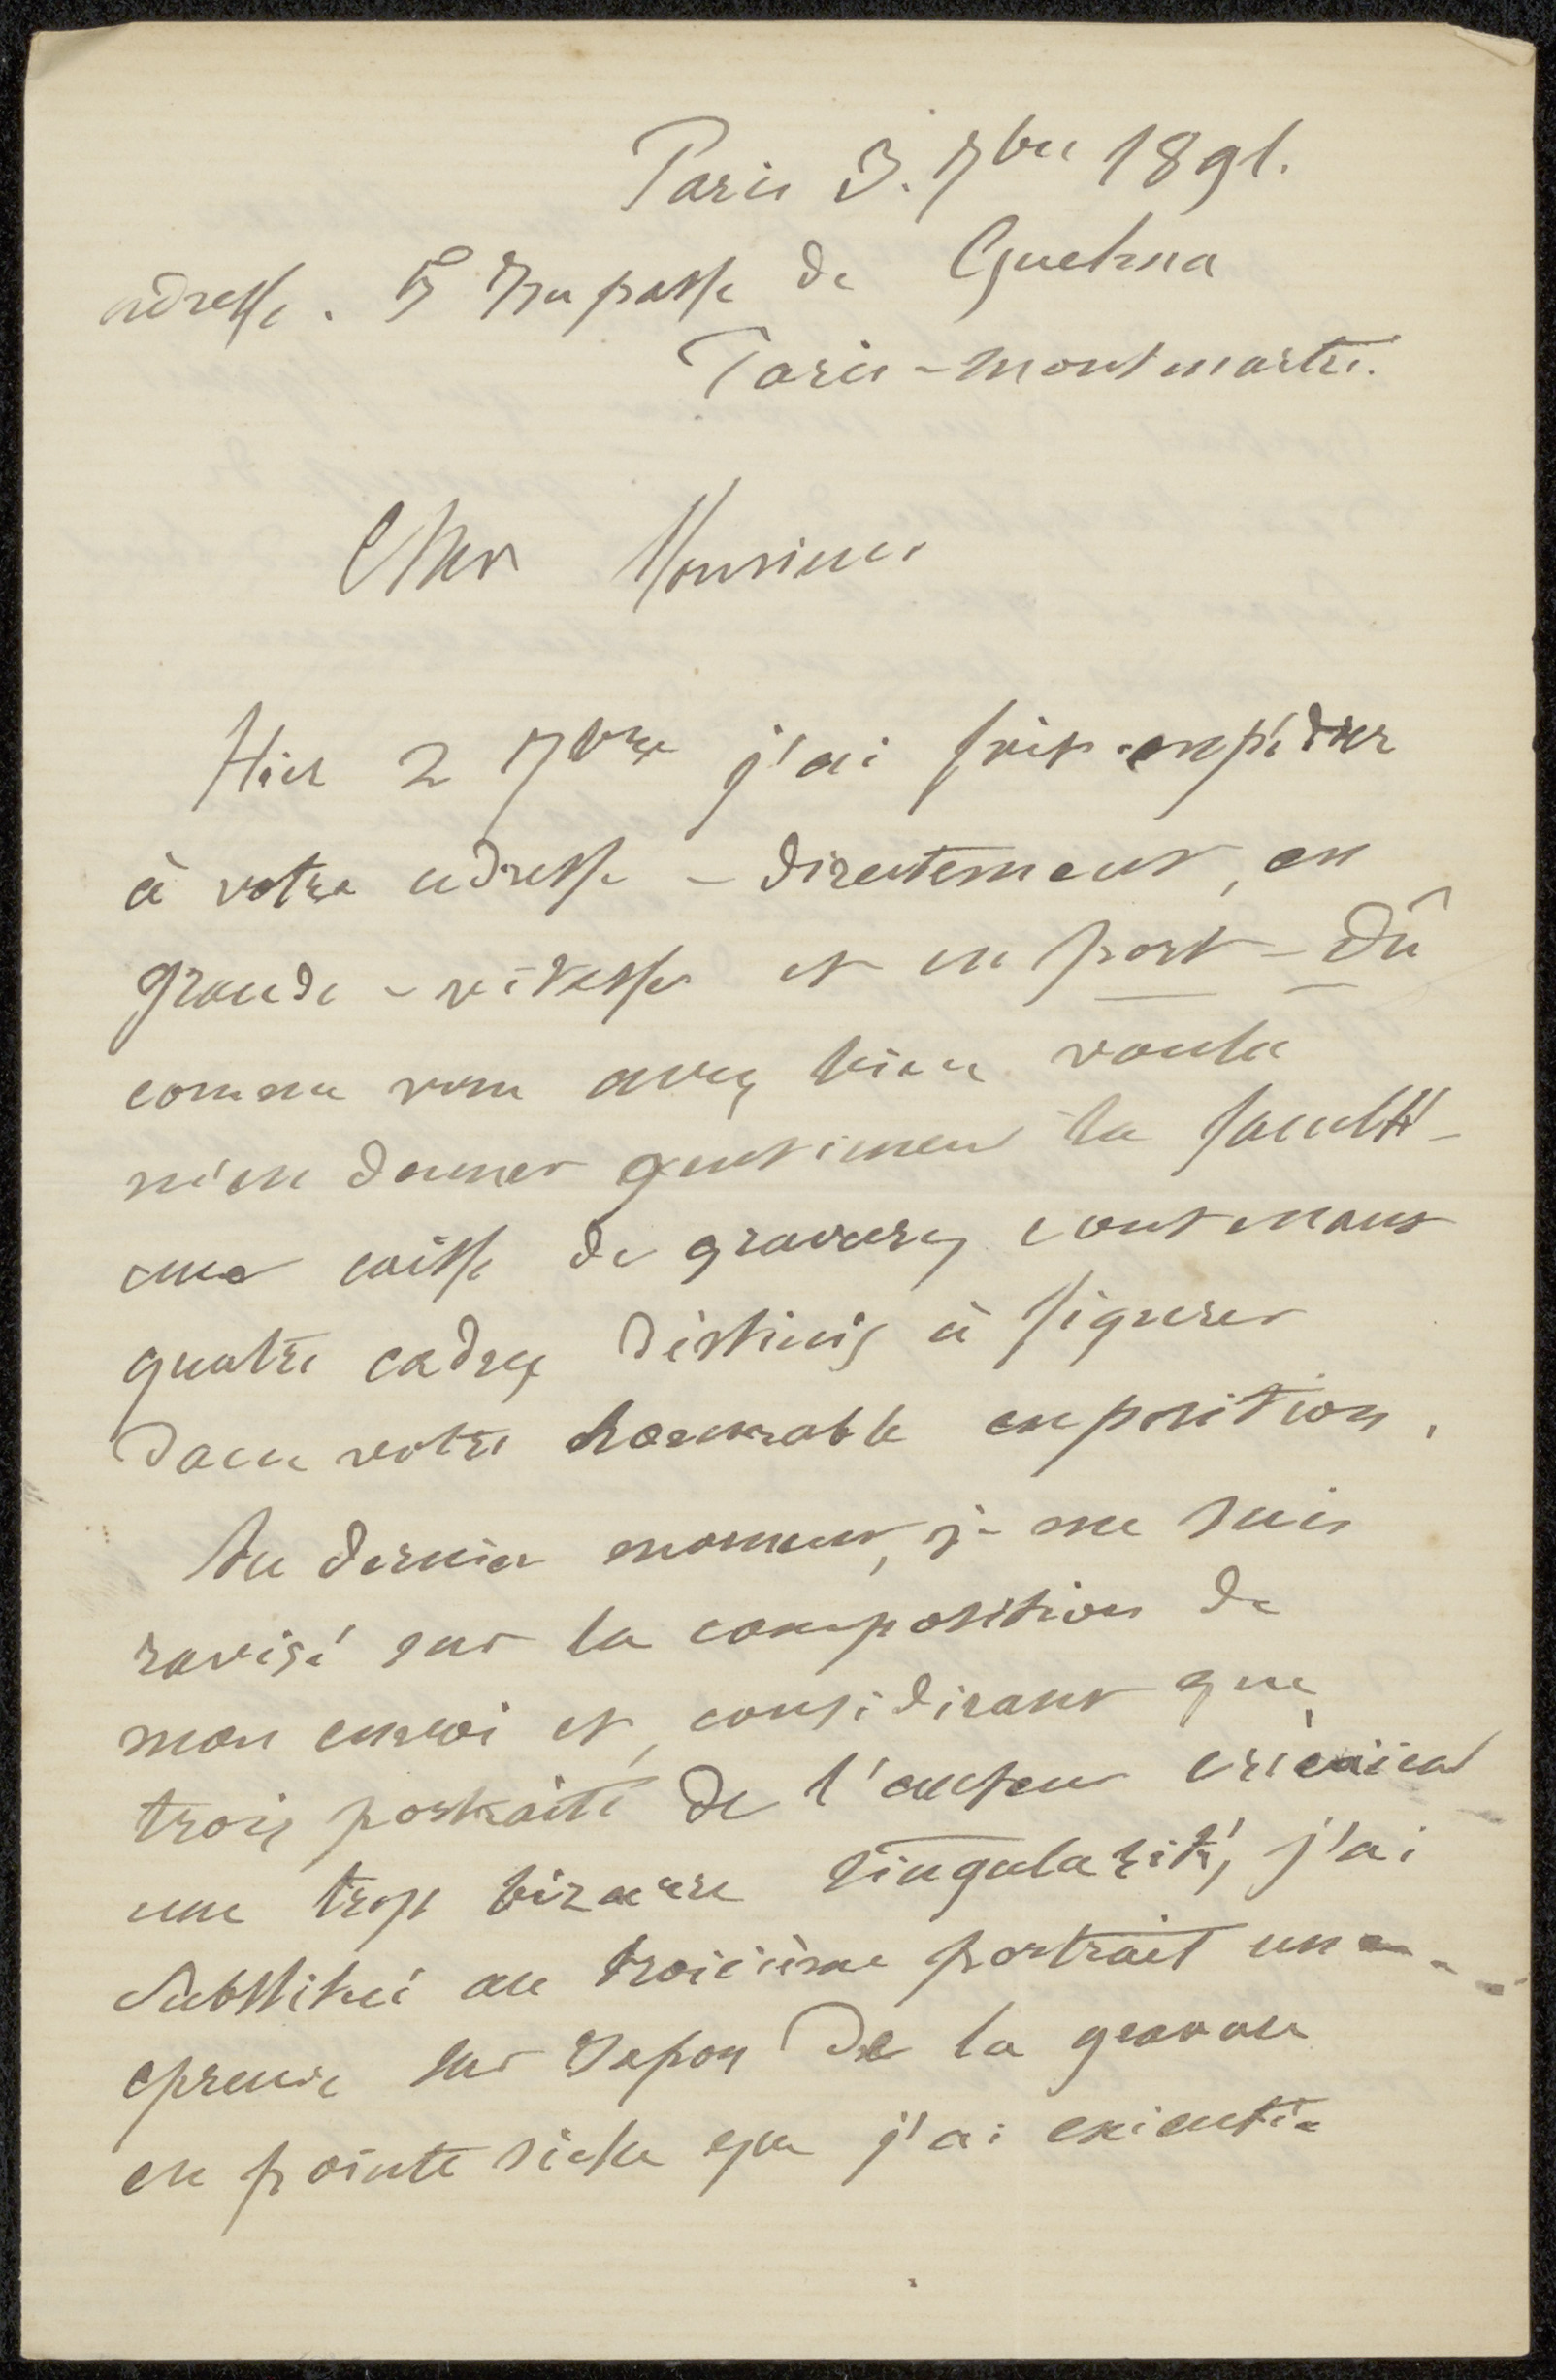 Paris 3. 7bre 1891.
adresse. 5 Impasse de Guelma
Paris-Montmartre.
Cher Monsieur
Hier 2 7bre j'ai fait expédier
à votre adresse – directement, en
grande-vitesse et en port-dû
comme vous avez bien voulu
m'en donner gentiment la faculté –
une caisse de gravures contenant
quatre cadres destinés à figurer
dans votre honorable exposition.
Au dernier moment, je me suis
ravisé sur la composition de
mon envoi et, considérant que
trois portraits de l'auteur créaient
une trop bizarre singularité, j'ai
substitué au troisième portrait une
epreuve sur Japon de la gravure
en pointe sèche que j'ai exécutée